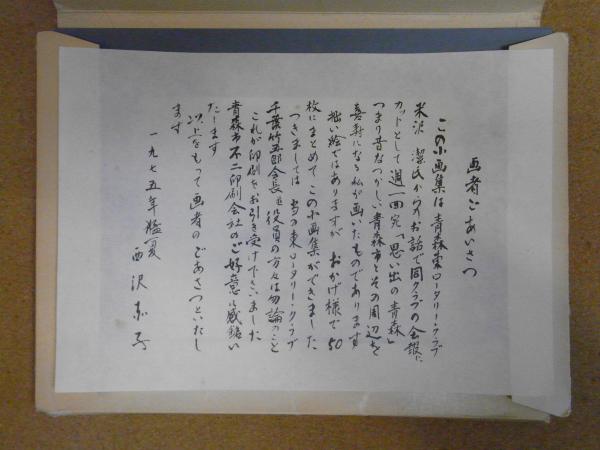 画者ごあいさつ
この小画集は青森東ロータリークラブ
米沢 潔氏からのお話で同クラブの会報に
カットとして週一回宛「思い出の青森」
つまり昔なつかしい青森市とその周辺を
喜寿になる私が画いたものであります
拙い絵ではありますが おかげ様で50
枚にまとめて この小画集ができました
つきましては 当の東ロータリー・クラブ
千葉竹五郎会長並役員の方々は勿論のこと
これが印刷をお引き受け下さいました
青森市不二印刷会社のご好意に感銘い
たします
以上をもって画者のごあさつといたし
ます
一九七五年 夏
西沢 赤子